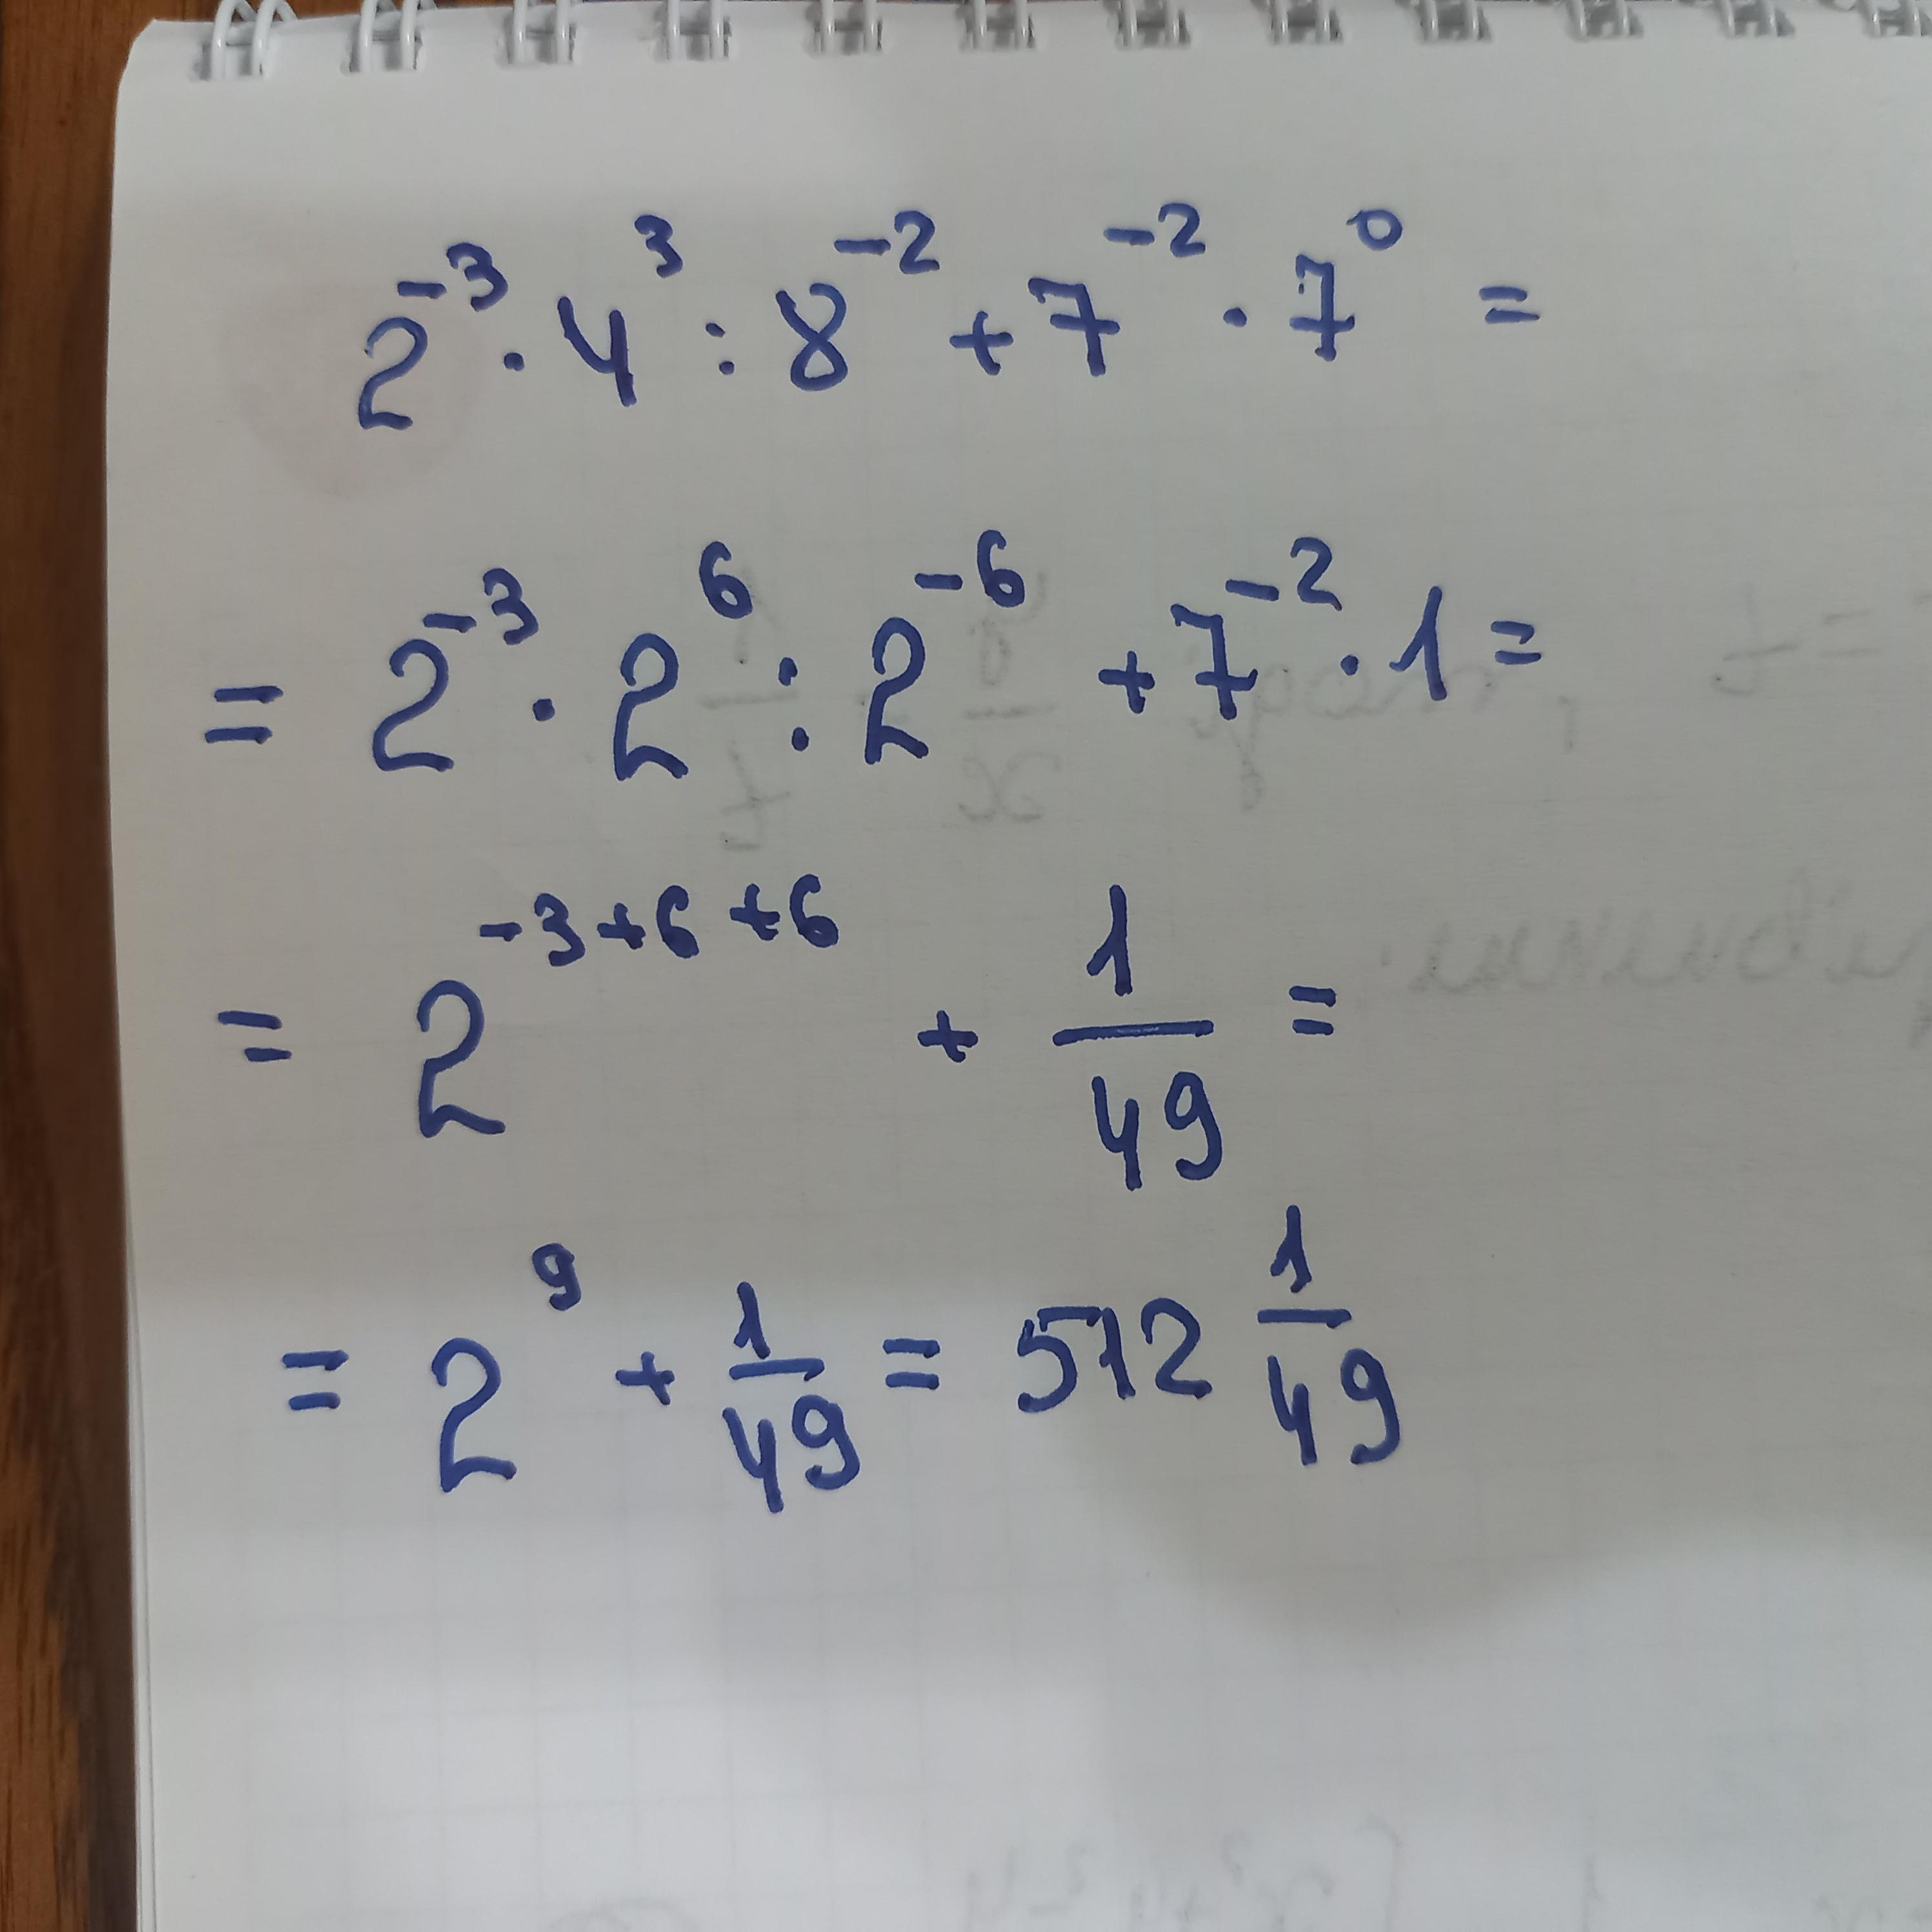 2⁻³ · 4³ : 8⁻² + 7⁻² · 7⁰ =
= 2⁻³ · 2⁶ : 2⁻⁶ + 7⁻² · 1 =
= 2⁻³⁺⁶⁺⁶ + 1/49 =
= 2⁹ + 1/49 = 512 1/49